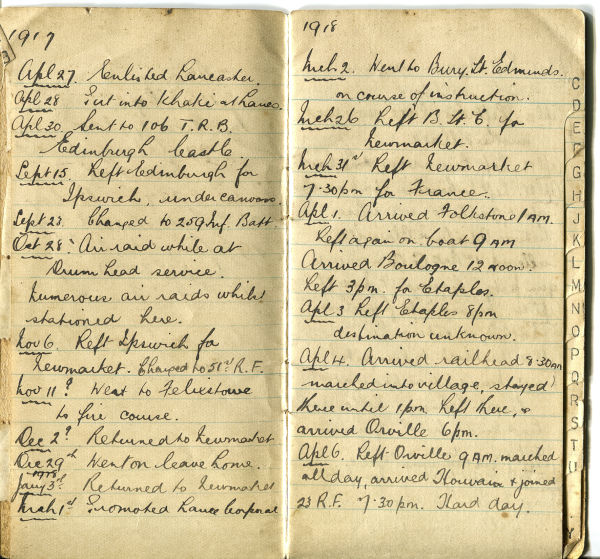 1917
Apl 27. Enlisted Lancaster.
Apl 28 Put into Khaki at Lancs.
Apl 30 Sent to 106 T.R.B.
Edinburgh Castle
Sept 15. Left Edinburgh for
Ipswich, under canvas.
Sept 23. Changed to 259 Inf. Batt.
Oct 28: Air raid while at
Drum head service.
Numerous air raids while
stationed here.
Nov 6. Left Ipswich for
Newmarket. Changed to 51st R.F.
Nov 11th Went to Felixstowe
to fire course.
Dec 2nd Returned to Newmarket
Dec 29th Went on leave home.
Jany 3rd Returned to Newmarket
Mrch 1st Promoted Lance Corporal
1918
Mch 2. Went to Bury St. Edmunds.
on course of instruction.
Mch 26 Left B. St. E. for
Newmarket.
Mch 31st Left Newmarket
7-30pm for France.
Apl 1. Arrived Folkstone 1 AM.
Left again on boat 9 AM
Arrived Boulogne 12 noon.
Left 3pm. for Etaples.
Apl 3 Left Etaples 8pm
destination unknown.
Apl 4. Arrived railhead 8-30am
marched into village, stayed
there until 1pm. Left there, &
arrived Orville 6pm.
Apl 6. Left Orville 9 AM. marched
all day, arrived & joined
23 R.F. 7-30pm. Hard day.
C
D
E
F
G
H
J
K
L
M
N
O
P
Q
R
S
T
U
Y